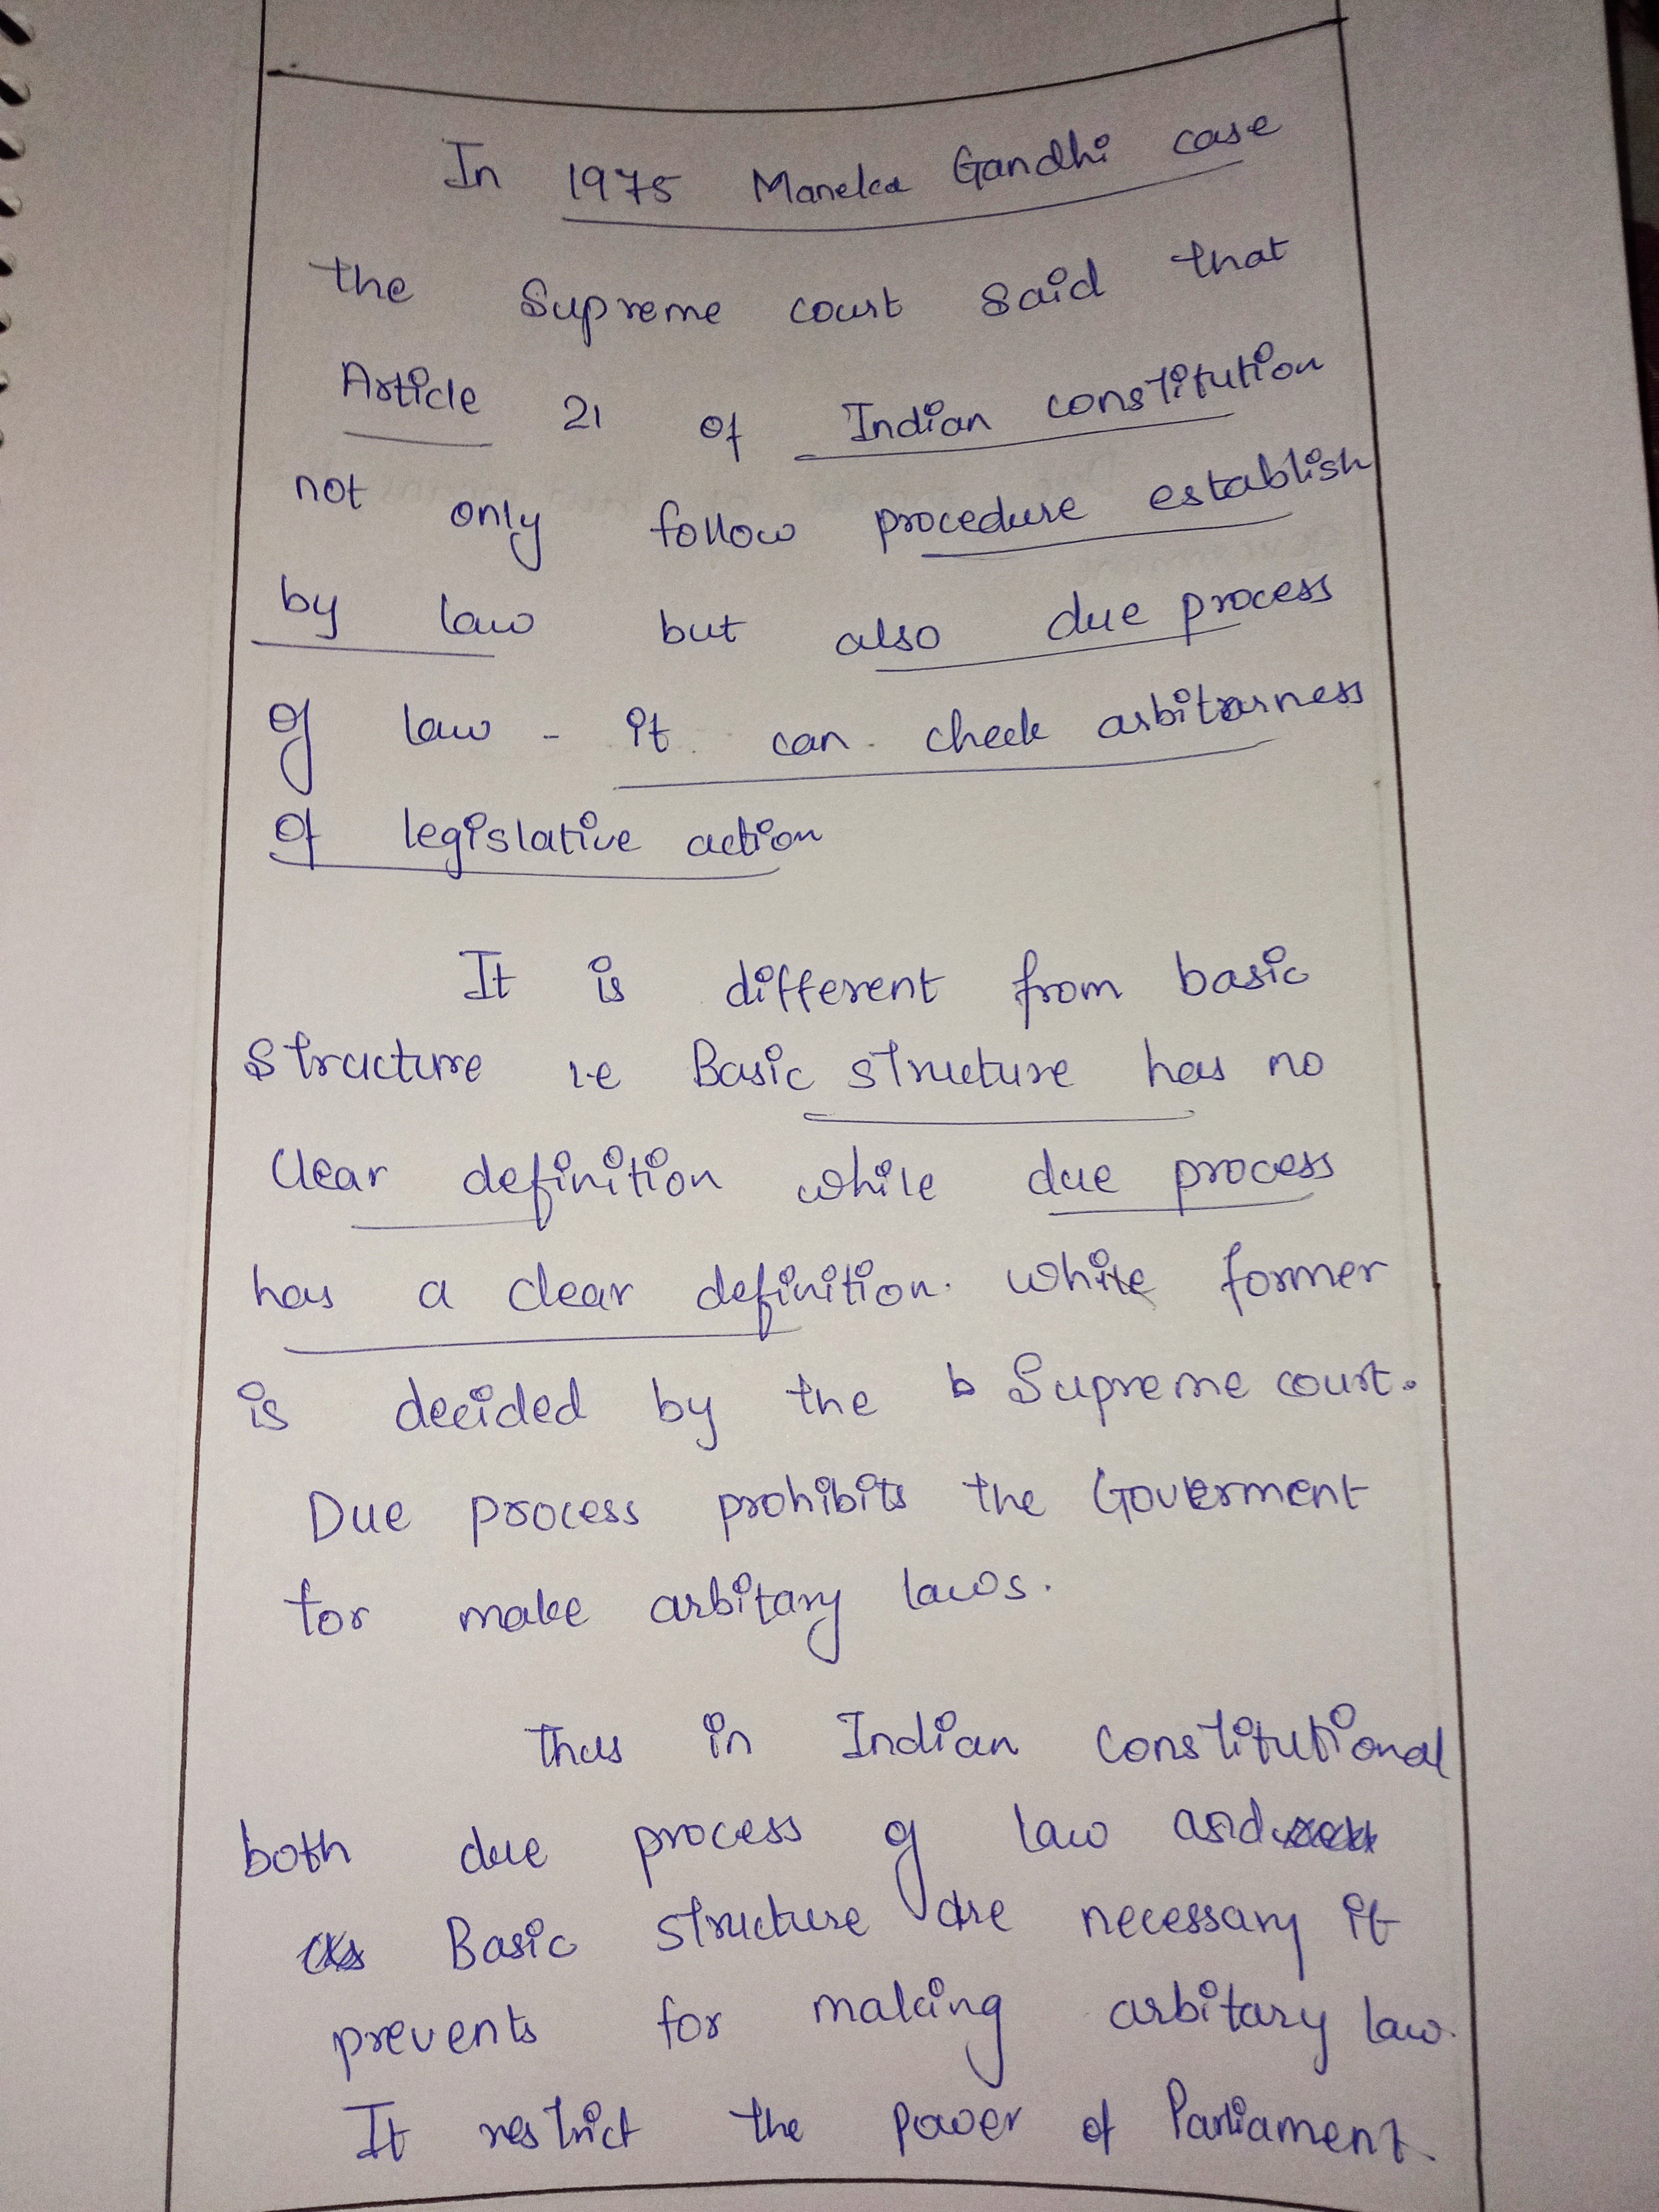 In 1975 Maneka Gandhi case
the Supreme court said that
Article 21 of Indian constitution
not only follow procedure establish
by law but also due process
of law - it can check arbitrarness
of legislative action
It is different from basic
structure i.e Basic structure has no
clear definition while due process
has a clear definition. While former
is decided by the b Supreme court.
Due process prohibits the Goverment
for make arbitary laws.
Thus in Indian constitutional
both due process of law and
Basic structure are necessary it
prevents for making arbitary law.
It restrict the power of Parliament.